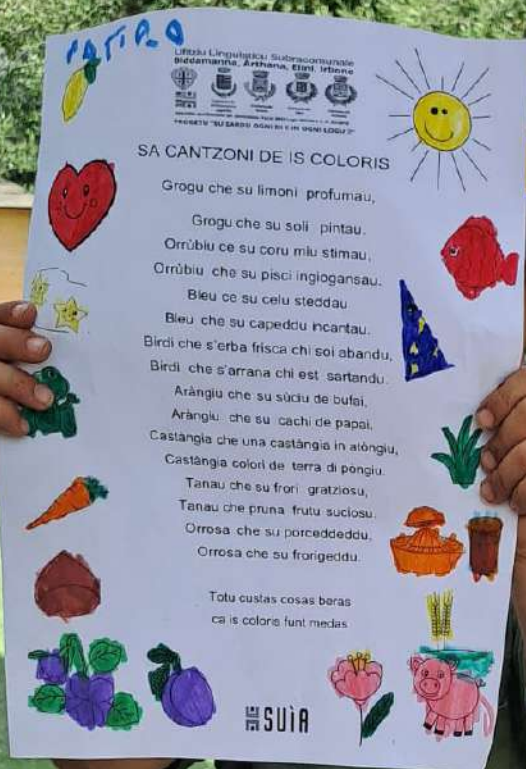 Ufìtziu Linguìsticu Subracomunale
Biddamanna, Àrthana, Elìni, Irbono
PROGETU "SU SARDU OGNI DÌ E IN OGNI LOGU 2"
SA CANTZONI DE IS COLORIS
Grogu che su limoni profumau,
Grogu che su soli pintau.
Orrùbiu ce su coru miu stimau,
Orrùbiu che su pisci ingiogansau.
Bleu ce su celu steddau
Bleu che su capeddu incantau.
Birdi che s'erba frisca chi soi abandu,
Birdi che s'arrana chi est sartandu.
Aràngiu che su sùciu de bufai,
Aràngiu che su cachi de papai,
Castàngia che una castàngia in atòngiu,
Castàngia colori de terra di pòngiu.
Tanau che su frori gratziosu,
Tanau che pruna frutu suciosu.
Orrosa che su porceddeddu,
Orrosa che su frorigeddu.
Totu custas cosas beras
ca is coloris funt medas
SUÌA